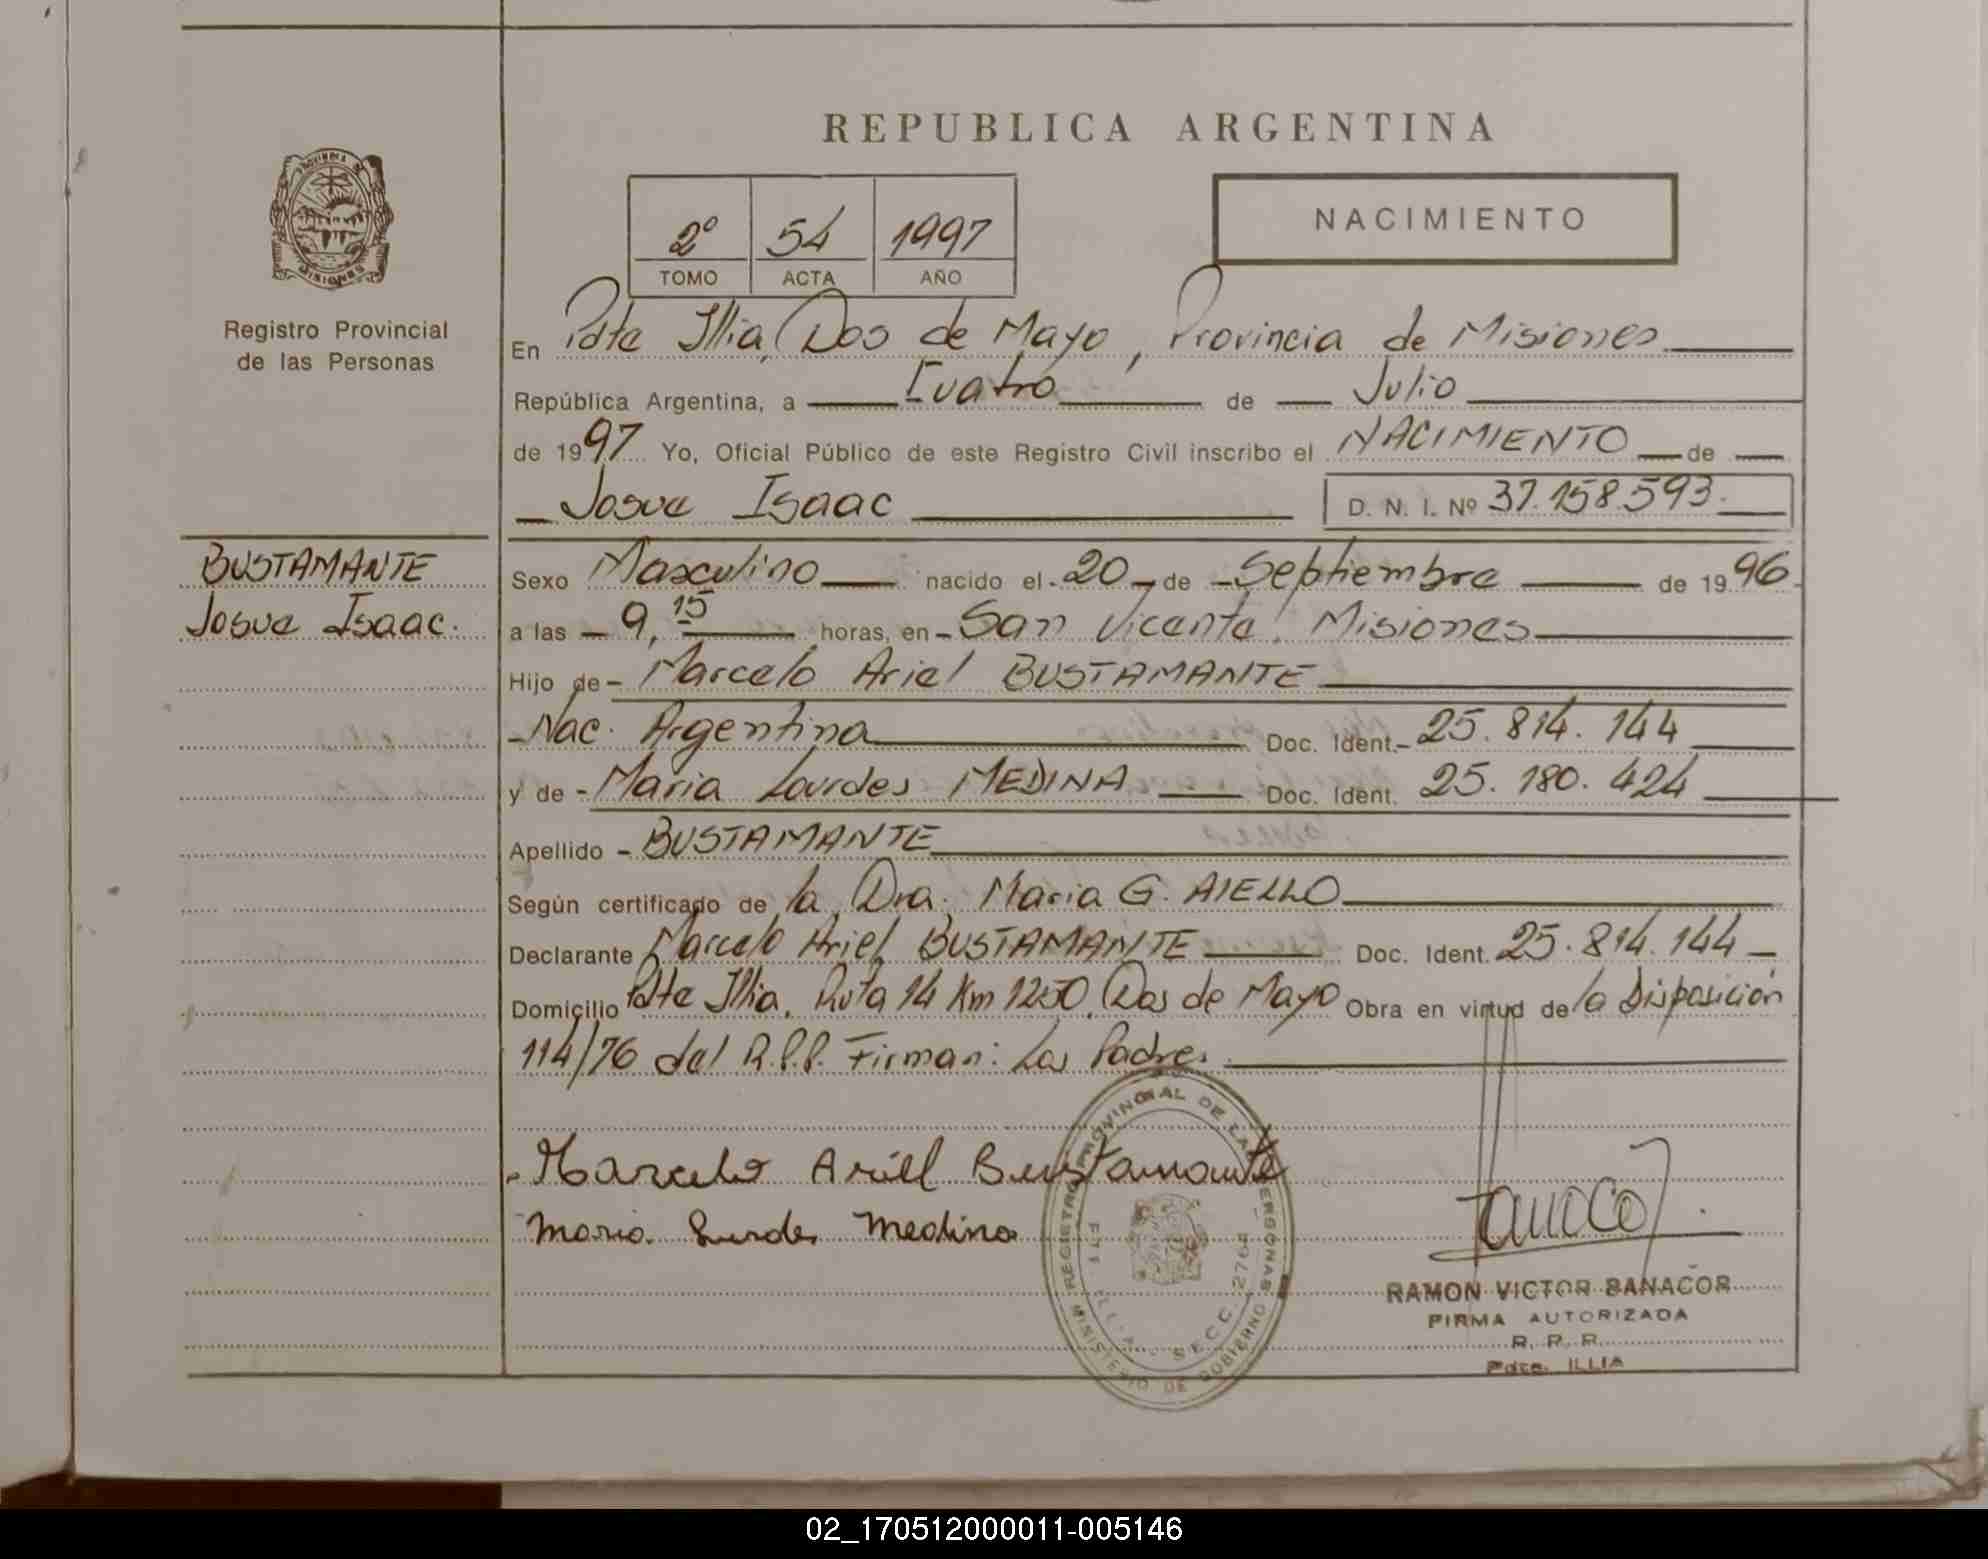 REPUBLICA ARGENTINA
PROVINCIA DE
MISIONES
Registro Provincial
de las Personas
2º 54 1997
TOMO ACTA AÑO
NACIMIENTO
En Pdte Illia, Dos de Mayo, Provincia de Misiones
República Argentina, a Cuatro de Julio
de 1997. Yo, Oficial Público de este Registro Civil inscribo el NACIMIENTO de
Josue Isaac D. N. I. Nº 37.158.593.
BUSTAMANTE
Josue Isaac.
Sexo Masculino nacido el 20 de Septiembre de 1996
a las 9,15 horas, en San Vicente, Misiones
Hijo de Marcelo Ariel BUSTAMANTE
Nac. Argentina Doc. Ident. 25.814.144
y de Maria Lourdes MEDINA Doc. Ident. 25.180.424
Apellido BUSTAMANTE
Según certificado de la Dra. Maria G. AIELLO
Declarante Marcelo Ariel BUSTAMANTE Doc. Ident. 25.814.144
Domicilio Pdte Illia, Ruta 14 Km 1250, Dos de Mayo Obra en virtud de la Disposición
114/76 del R.P.P. Firman: Los Padres.
Marcelo Ariel Bustamante
Maria Lurdes Medina
REGISTRO PROVINCIAL DE LAS PERSONAS
MINISTERIO DE GOBIERNO
ILLIA - SECC. 2764
RAMON VICTOR BANACOR
FIRMA AUTORIZADA
R. P. P.
Pdte. ILLIA
02_170512000011-005146